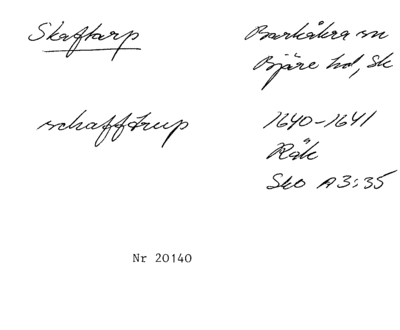 Skaftarp
Barkåkra sn
Bjäre hd, Sk
schafftrup
1640-1641
Räk
Sko A3:35
Nr 20140